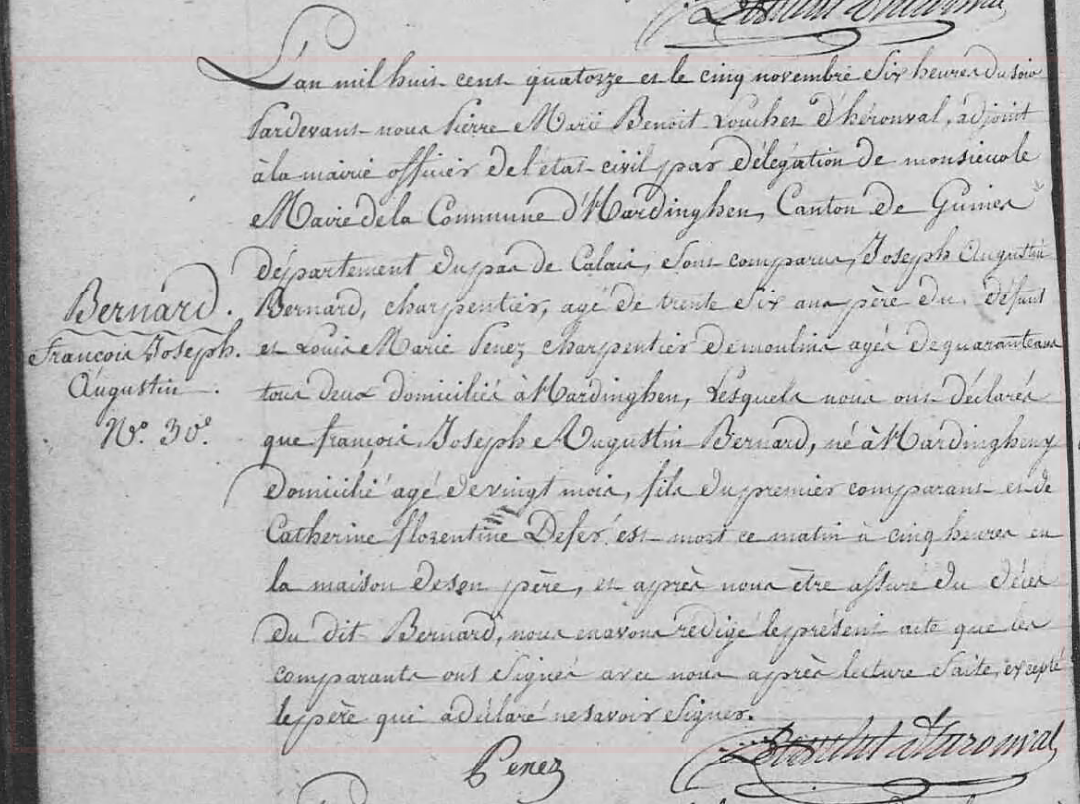 L'an mil huit cent quatorze et le cinq novembre six heures du soir
Pardevant nous Pierre Marie Benoit Louchet d'héronval, adjoint
à la mairie officier de l'état civil par délégation de monsieur le
Maire de la Commune d'Hardinghen, Canton de Guines
département du pas de Calais, sont comparus, Joseph Augustin
Bernard, charpentier, agé de trente six ans père du défunt
et Louis Marie Penez charpentier de moulins agés de quarante ans
tous deux domiciliés à Hardinghen, Lesquels nous ont déclarés
que françois Joseph Augustin Bernard, né à Hardinghen y
domicilié agé de vingt mois, fils du premier comparant et de
Catherine florentine Defer est mort ce matin à cinq heures en
la maison de son père, et après nous être assuré du décès
du dit Bernard, nous en avons rédigé le présent acte que les
comparants ont signés avec nous après lecture faite, excepté
le père qui a déclaré ne savoir signer.
Bernard.
François Joseph.
Augustin.
N.º 30.º
Penez